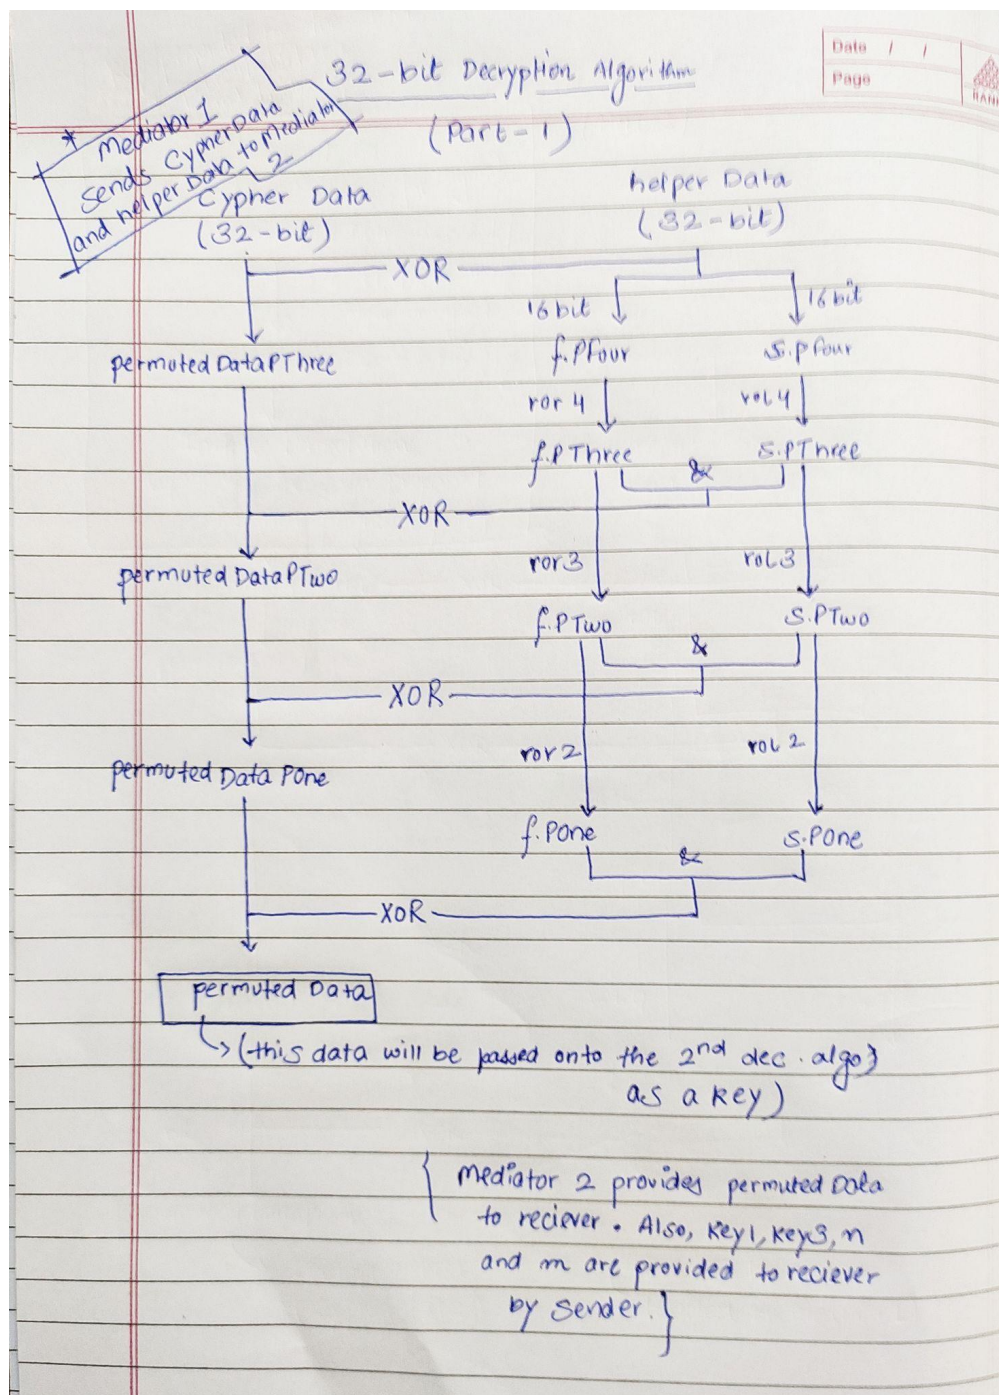 Date / /
Page
32-bit Decryption Algorithm
(Part-1)
* Mediator 1
sends CypherData
and helper Data to Mediator
2
Cypher Data
(32-bit)
helper Data
(32-bit)
XOR
16 bit
16 bit
permuted DataPThree
f.PFour
s.pfour
ror 4
rol 4
f.PThree
&
s.PThree
XOR
permuted DataPTwo
ror 3
rol 3
f.PTwo
&
s.PTwo
XOR
permuted Data POne
ror 2
rol 2
f.POne
&
s.POne
XOR
permuted Data
(this data will be passed onto the 2nd dec. algo}
as a key)
{ Mediator 2 provides permuted Data
to reciever. Also, Key1, Key3, n
and m are provided to reciever
by Sender.}